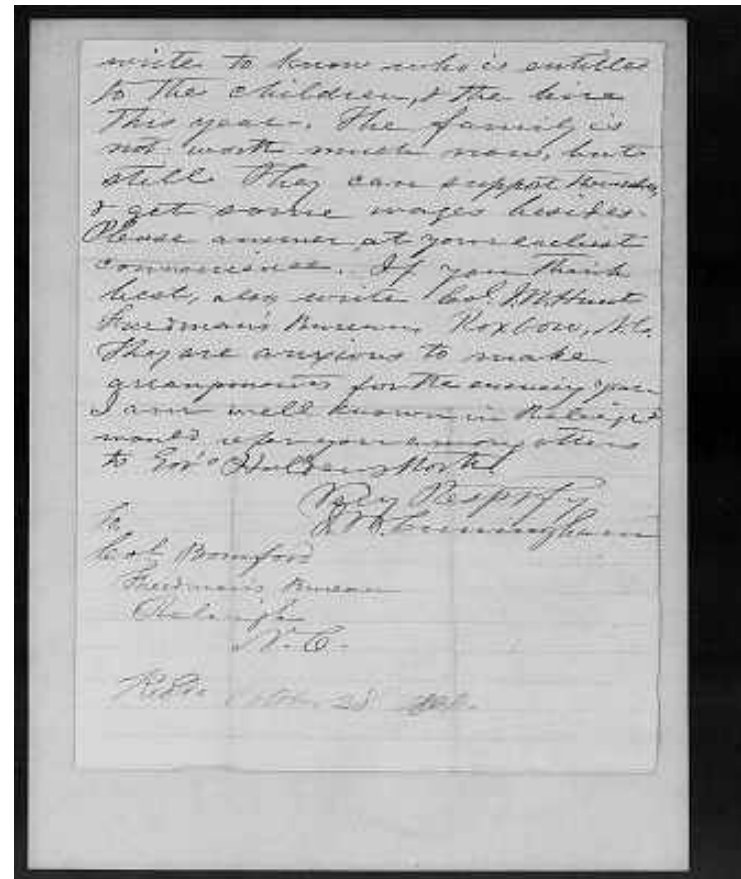 write to know who is entitled
to the children, & the hire
this year. The family is
not worth much now, but
still they can support themselves,
& get some wages besides.
Please answer at your earliest
convenience. If you think
best, also write Col. Hunt
Freedman's Bureau, Roxboro, N.C.
They are anxious to make
for the ensuing year
I am well known in Raleigh &
would refer you among others
to Gov's Holden & Worth
Very Respfy
Cunningham
To
Col. Bomford
Freedman's Bureau
Raleigh
N.C.
October